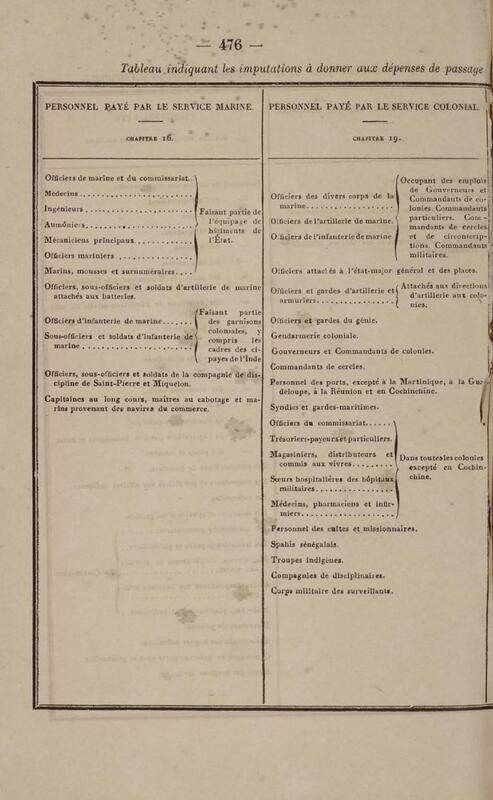 — 476 —
Tableau indiquant les imputations à donner aux dépenses de passage
PERSONNEL PAYÉ PAR LE SERVICE MARINE.
CHAPITRE 16.
Officiers de marine et du commissariat..
Médecins
Ingénieurs
Aumôniers
Mécaniciens principaux
Officiers mariniers
Marins, mousses et surnuméraires
Faisant partie de
l'équipage de
bâtiments de
l'État.
Officiers, sous-officiers et soldats d'artillerie de marine
attachés aux batteries.
Officiers d'infanterie de marine
Sous-officiers et soldats d'infanterie de
marine
Faisant partie
des garnisons
coloniales, y
compris les
cadres des ci-
payes de l'Inde
Officiers, sous-officiers et soldats de la compagnie de dis-
cipline de Saint-Pierre et Miquelon.
Capitaines au long cours, maîtres au cabotage et ma-
rins provenant des navires du commerce.
PERSONNEL PAYÉ PAR LE SERVICE COLONIAL.
CHAPITRE 19.
Officiers des divers corps de la
marine
Officiers de l'artillerie de marine.
Officiers de l'infanterie de marine
Occupant des emplois
de Gouverneurs et
Commandants de co-
lonies. Commandants
particuliers. Com-
mandants de cercles
et de circonscrip-
tions. Commandants
militaires.
Officiers attachés à l'état-major général et des places.
Officiers et gardes d'artillerie et
armuriers
Attachés aux directions
d'artillerie aux colo-
nies.
Officiers et gardes du génie.
Gendarmerie coloniale.
Gouverneurs et Commandants de colonies.
Commandants de cercles.
Personnel des ports, excepté à la Martinique, à la Gua-
deloupe, à la Réunion et en Cochinchine.
Syndics et gardes-maritimes.
Officiers du commissariat
Trésoriers-payeurs et particuliers.
Magasiniers, distributeurs et
commis aux vivres
Sœurs hospitalières des hôpitaux
militaires
Médecins, pharmaciens et infir-
miers
Dans toutes les colonies
excepté en Cochin-
chine.
Personnel des cultes et missionnaires.
Spahis sénégalais.
Troupes indigènes.
Compagnies de disciplinaires.
Corps militaire des surveillants.